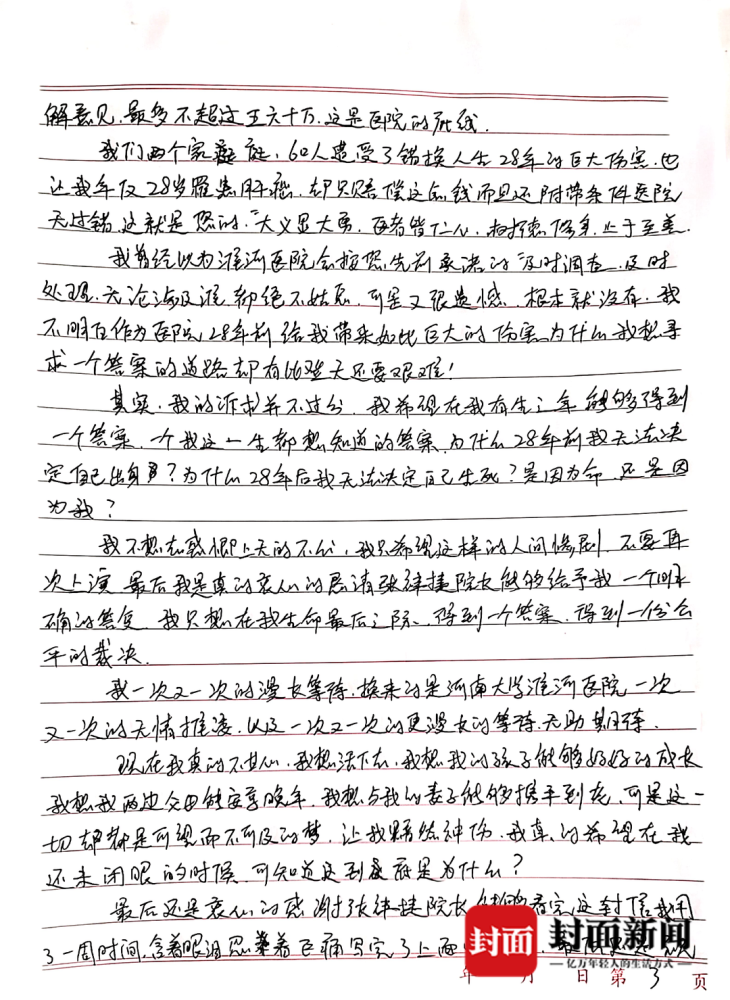 解意见，最多不超过五六十万，这是医院的底线。
我们两个家庭，60人遭受了错换人生28年的巨大伤害，也
让我年仅28岁罹患肝癌，却只赔偿这点钱而且还附带条件医院
无过错，这就是您的，"大义显大勇，医者皆仁心，尚德修身，止于至善。
我曾经以为淮河医院会按您先前承诺的"及时调查，及时
处理，无论涉及谁，都绝不姑息，可是又很遗憾，根本就没有，我
不明白作为医院28年前给我带来如此巨大的伤害，为什么我想寻
求一个答案的道路却有比登天还要艰难！
其实，我的诉求并不过分，我希望在我有生之年能够得到
一个答案，一个我这一生都想知道的答案，为什么28年前我无法决
定自己出身？为什么28年后我无法决定自己生死？是因为命，还是因
为我？
我不想去怨恨上天的不公，我只希望这样的人间惨剧，不要再
次上演，最后我是真的衷心的恳请张祎捷院长能够给予我一个明
确的答复，我只想在我生命最后之际，得到一个答案，得到一份公
平的裁决。
我一次又一次的漫长等待，换来的是河南大学淮河医院一次
又一次的无情推诿，以及一次又一次的更漫长的等待，无助，期待。
现在我真的不甘心，我想活下去，我想我的孩子能够好好的成长
我想我两边父母能安享晚年，我想与我的妻子能够携手到老，可是这一
切却都是可望而不可及的梦，让我黯然神伤，我真的希望在我
还未闭眼的时候，可知道这到底是为什么？
最后还是衷心的感谢张祎捷院长能够看完这封信，我用
了一周时间，含着眼泪忍着巨痛写完了上面
年 月 日 第 3 页
封面 封面新闻
亿万年轻人的生活方式